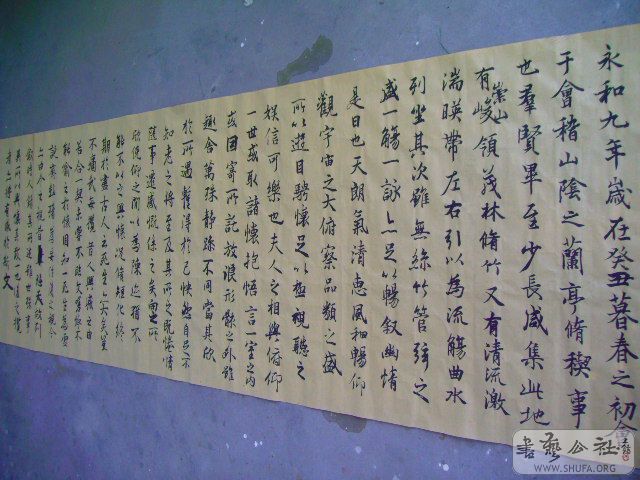 永和九年歲在癸丑暮春之初會
于會稽山陰之蘭亭脩稧事
也羣賢畢至少長咸集此地
有崇山峻領茂林脩竹又有清流激
湍暎帶左右引以為流觴曲水
列坐其次雖無絲竹管弦之
盛一觴一詠亦足以暢叙幽情
是日也天朗氣清惠風和暢仰
觀宇宙之大俯察品類之盛
所以遊目騁懷足以極視聽之
娛信可樂也夫人之相與俯仰
一世或取諸懷抱悟言一室之內
或因寄所託放浪形骸之外雖
趣舍萬殊靜躁不同當其欣
於所遇蹔得於己快然自足不
知老之將至及其所之既惓情
隨事遷感慨係之矣向之所
欣俛仰之間以為陳迹猶不
能不以之興懷況脩短化終
期於盡古人云死生亦大矣豈
不痛哉每攬昔人興感之由
若合一契未嘗不臨文嗟悼不
能喻之於懷固知一死生為虛
書艺公社
WWW.SHUFA.ORG